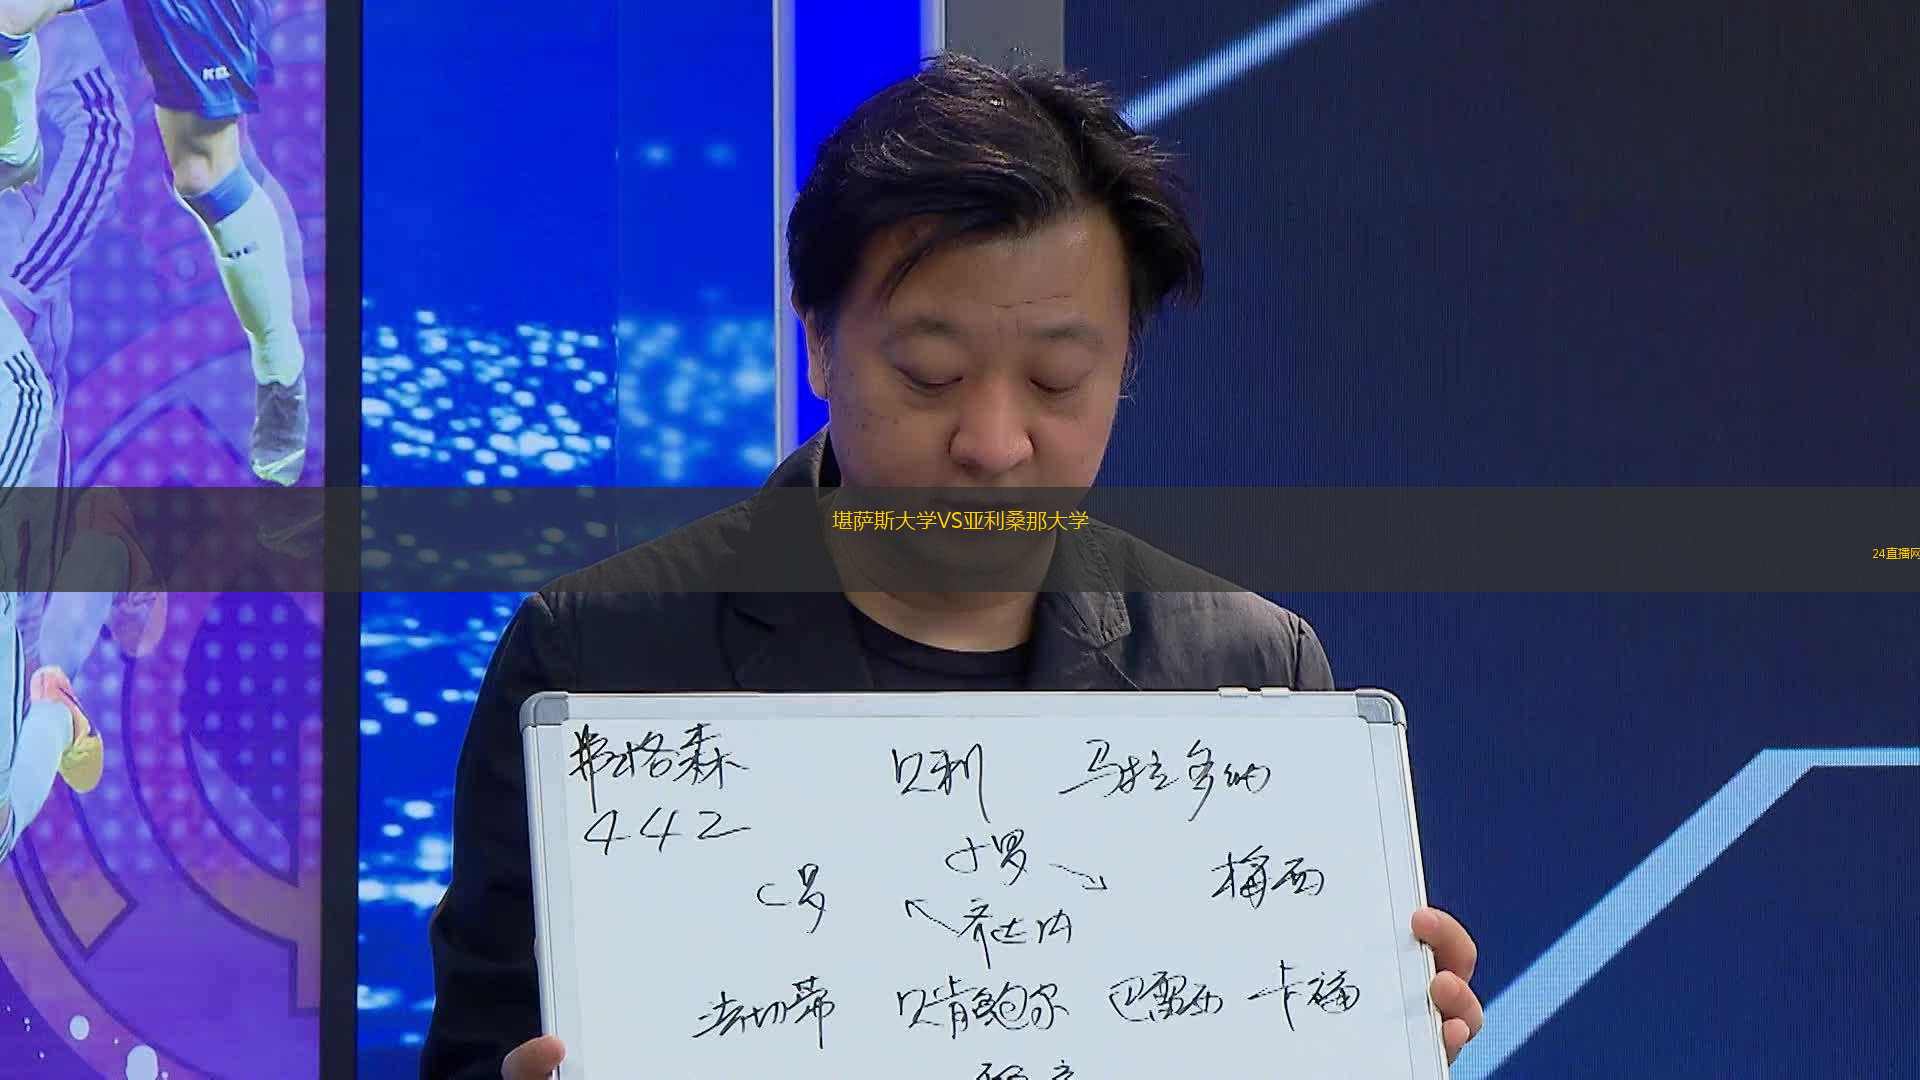 堪萨斯大学VS亚利桑那大学
24直播网
弗格森 贝利 马拉多纳
442
小罗
C罗 梅西
齐达内
法切蒂 贝肯鲍尔 巴雷西 卡福